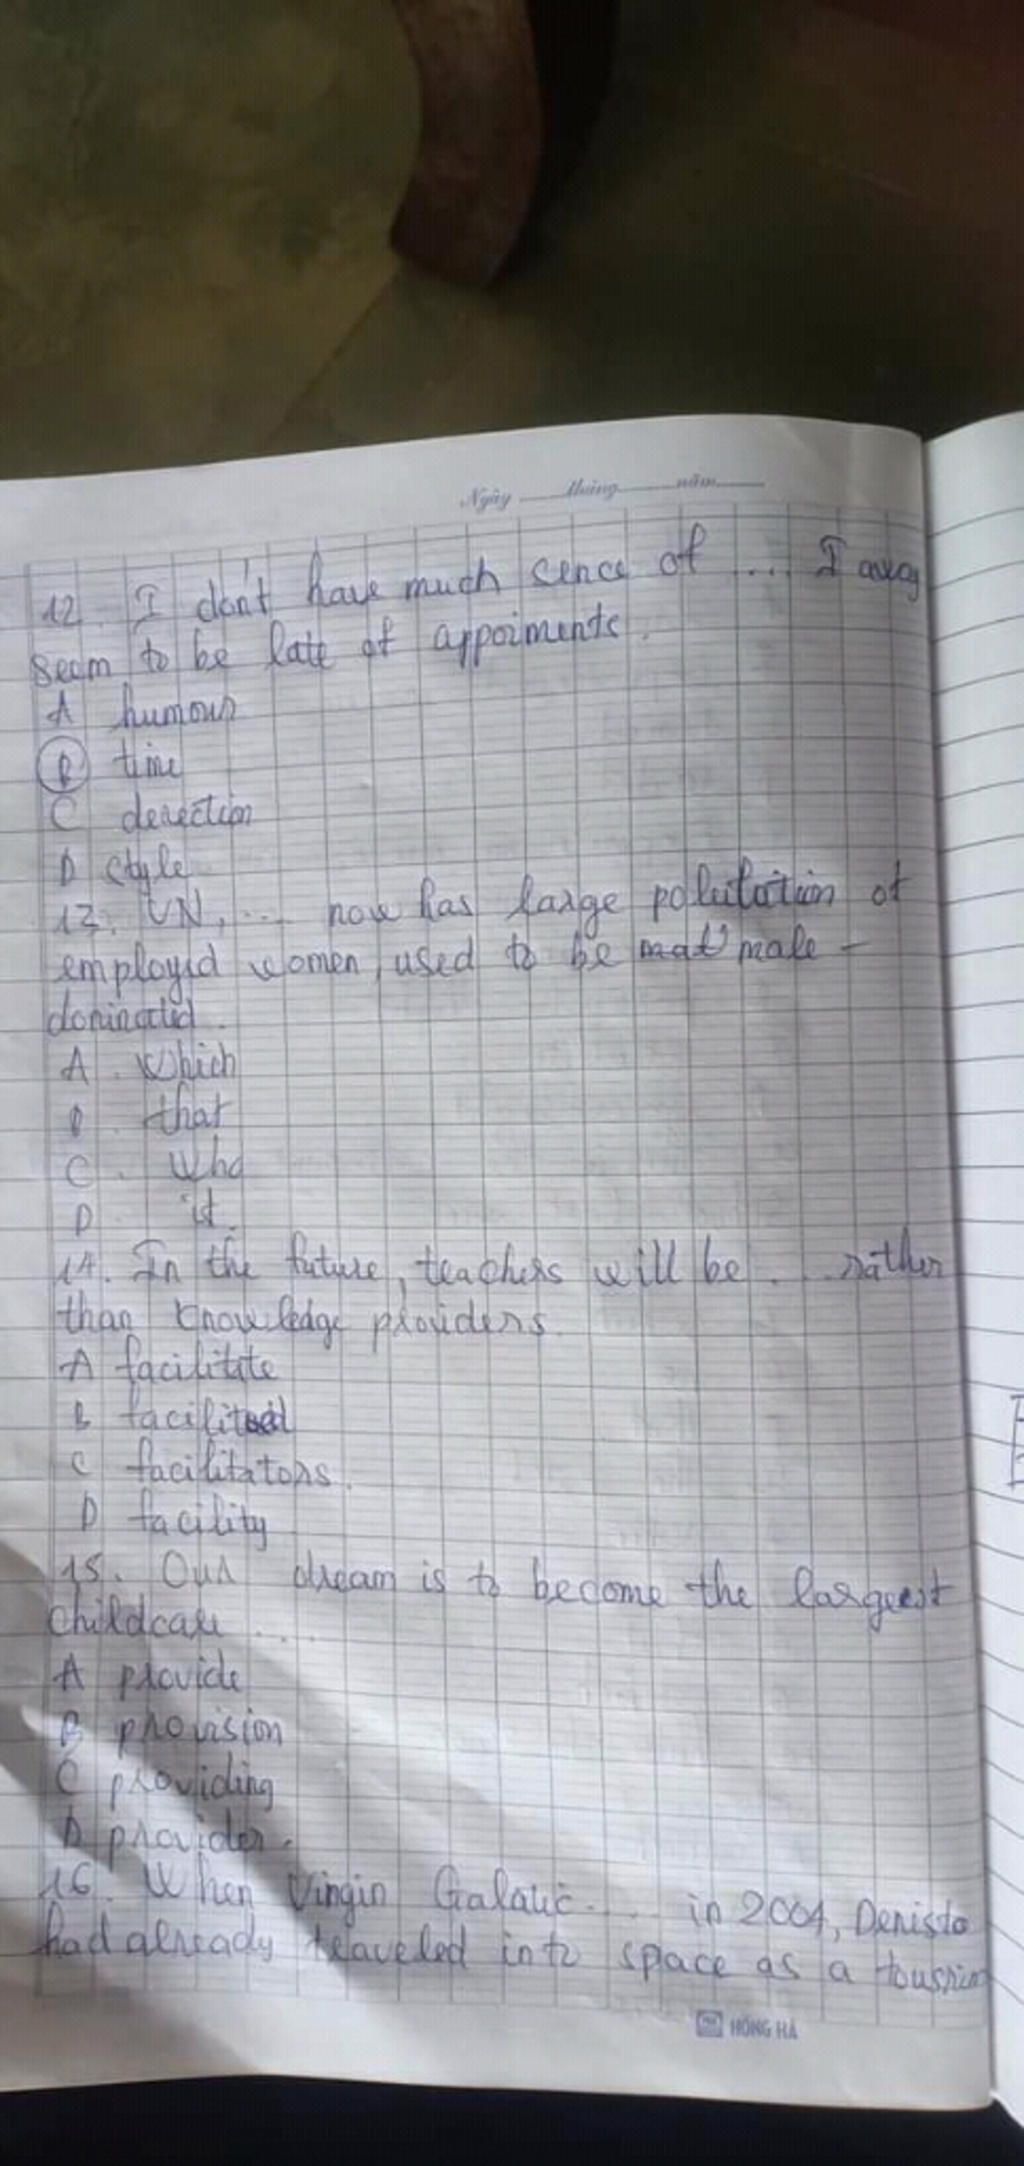 Ngày tháng năm
12. I don't have much sence of ... I
seem to be late of appoiments.
A humour
B time
C derection
D style
13. VN, ... now has large of
employed women, used to be male -
dominated.
A. which
B. that
C. who
D. it.
14. In the future, teachers will be ... rather
than knowledge providers.
A facilitate
B
C facilitators.
D facility
15. Our dream is to become the largest
childcare ....
A provide
B provision
C providing
D provider.
16. When Virgin Galatic .... in 2004, Denisto
had already traveled into space as a
HỒNG HÀ